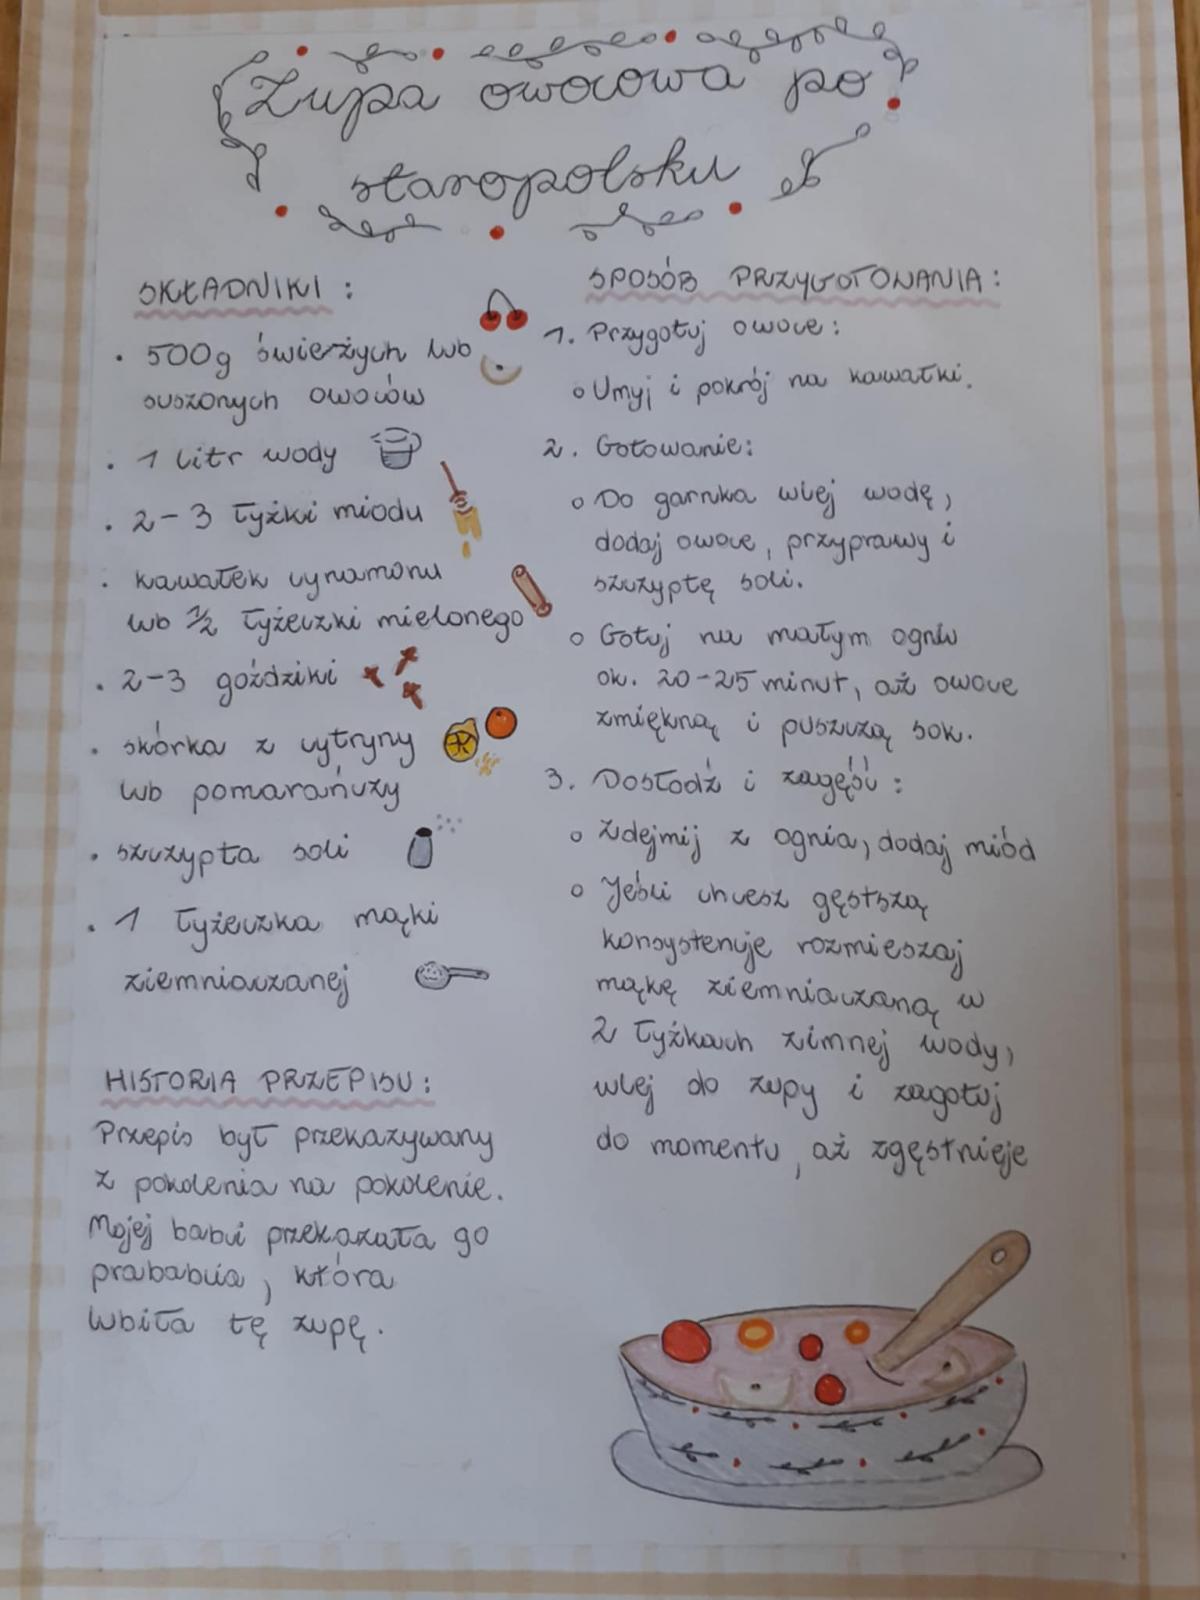 Zupa owocowa po
staropolsku
SKŁADNIKI:
• 500g świeżych lub
suszonych owoców
• 1 litr wody
• 2-3 łyżki miodu
• kawałek cynamonu
lub ½ łyżeczki mielonego
• 2-3 goździki
• skórka z cytryny
lub pomarańczy
• szczypta soli
• 1 łyżeczka mąki
ziemniaczanej
HISTORIA PRZEPISU:
Przepis był przekazywany
z pokolenia na pokolenie.
Mojej babci przekazała go
prababcia, która
lubiła tę zupę.
SPOSÓB PRZYGOTOWANIA:
1. Przygotuj owoce:
o Umyj i pokrój na kawałki.
2. Gotowanie:
o Do garnka wlej wodę,
dodaj owoce, przyprawy i
szczyptę soli.
o Gotuj na małym ogniu
ok. 20-25 minut, aż owoce
zmiękną i puszczą sok.
3. Dosłodź i zagęść:
o Zdejmij z ognia, dodaj miód
o Jeśli chcesz gęstszą
konsystencję rozmieszaj
mąkę ziemniaczaną w
2 łyżkach zimnej wody,
wlej do zupy i zagotuj
do momentu, aż zgęstnieje